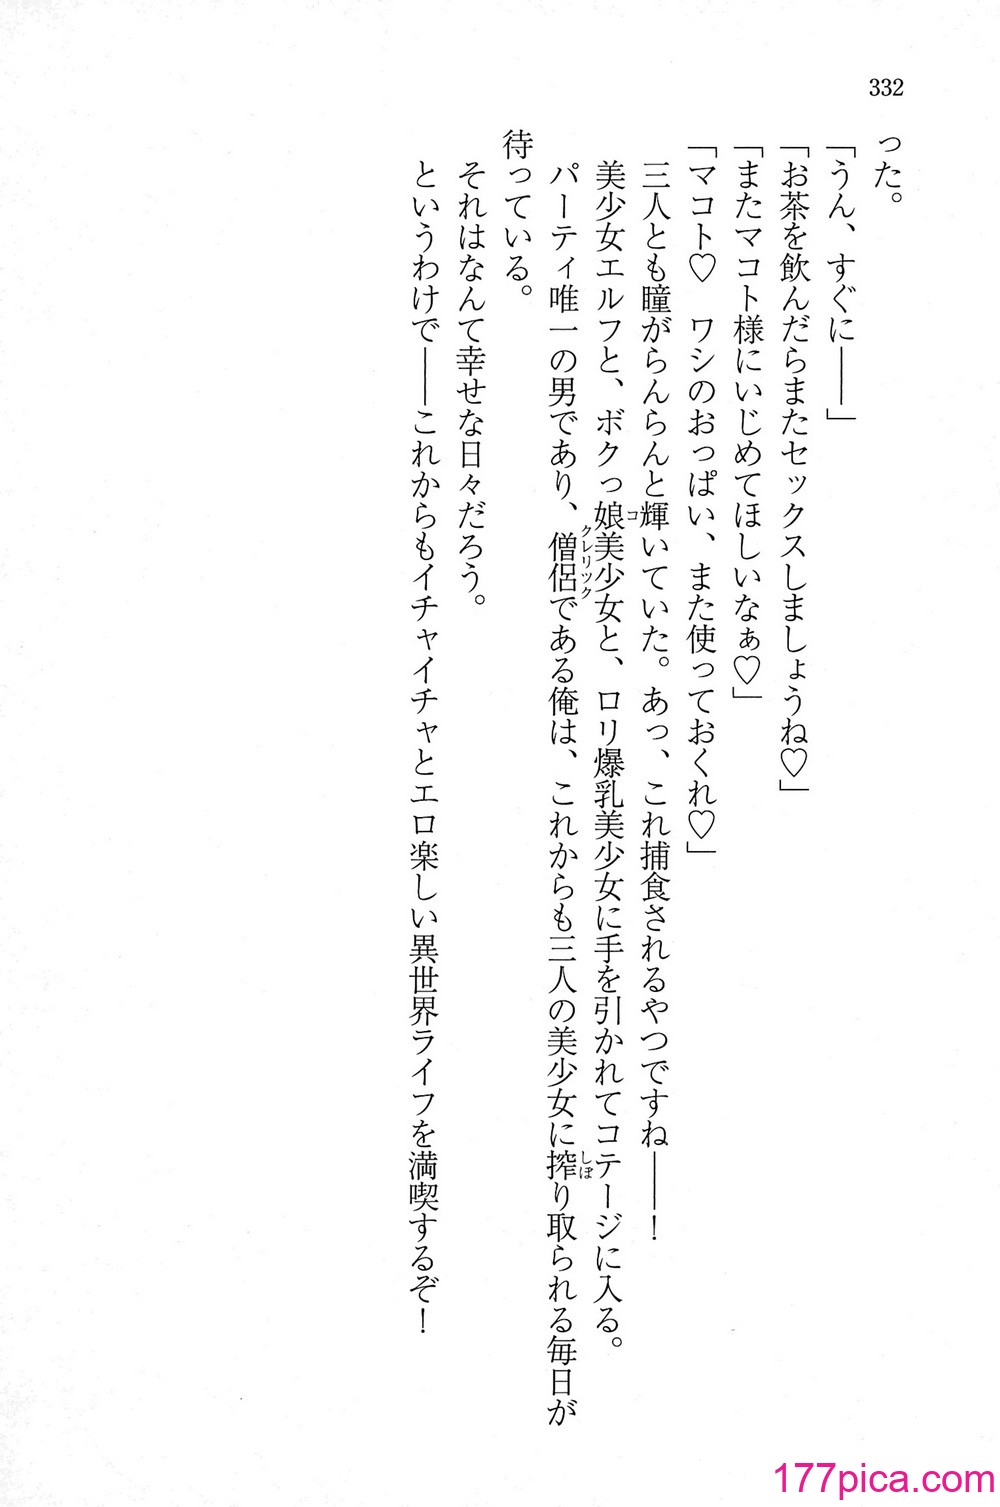 332
った。
「うん、すぐに――」
「お茶を飲んだらまたセックスしましょうね♡」
「またマコト様にいじめてほしいなぁ♡」
「マコト♡　ワシのおっぱい、また使っておくれ♡」
三人とも瞳がらんらんと輝いていた。あっ、これ捕食されるやつですね――！
美少女エルフと、ボクっ娘美少女と、ロリ爆乳美少女に手を引かれてコテージに入る。
パーティ唯一の男であり、僧侶である俺は、これからも三人の美少女に搾り取られる毎日が
待っている。
それはなんて幸せな日々だろう。
というわけで――これからもイチャイチャとエロ楽しい異世界ライフを満喫するぞ！
コ
クレリック
しぼ
177pica.com